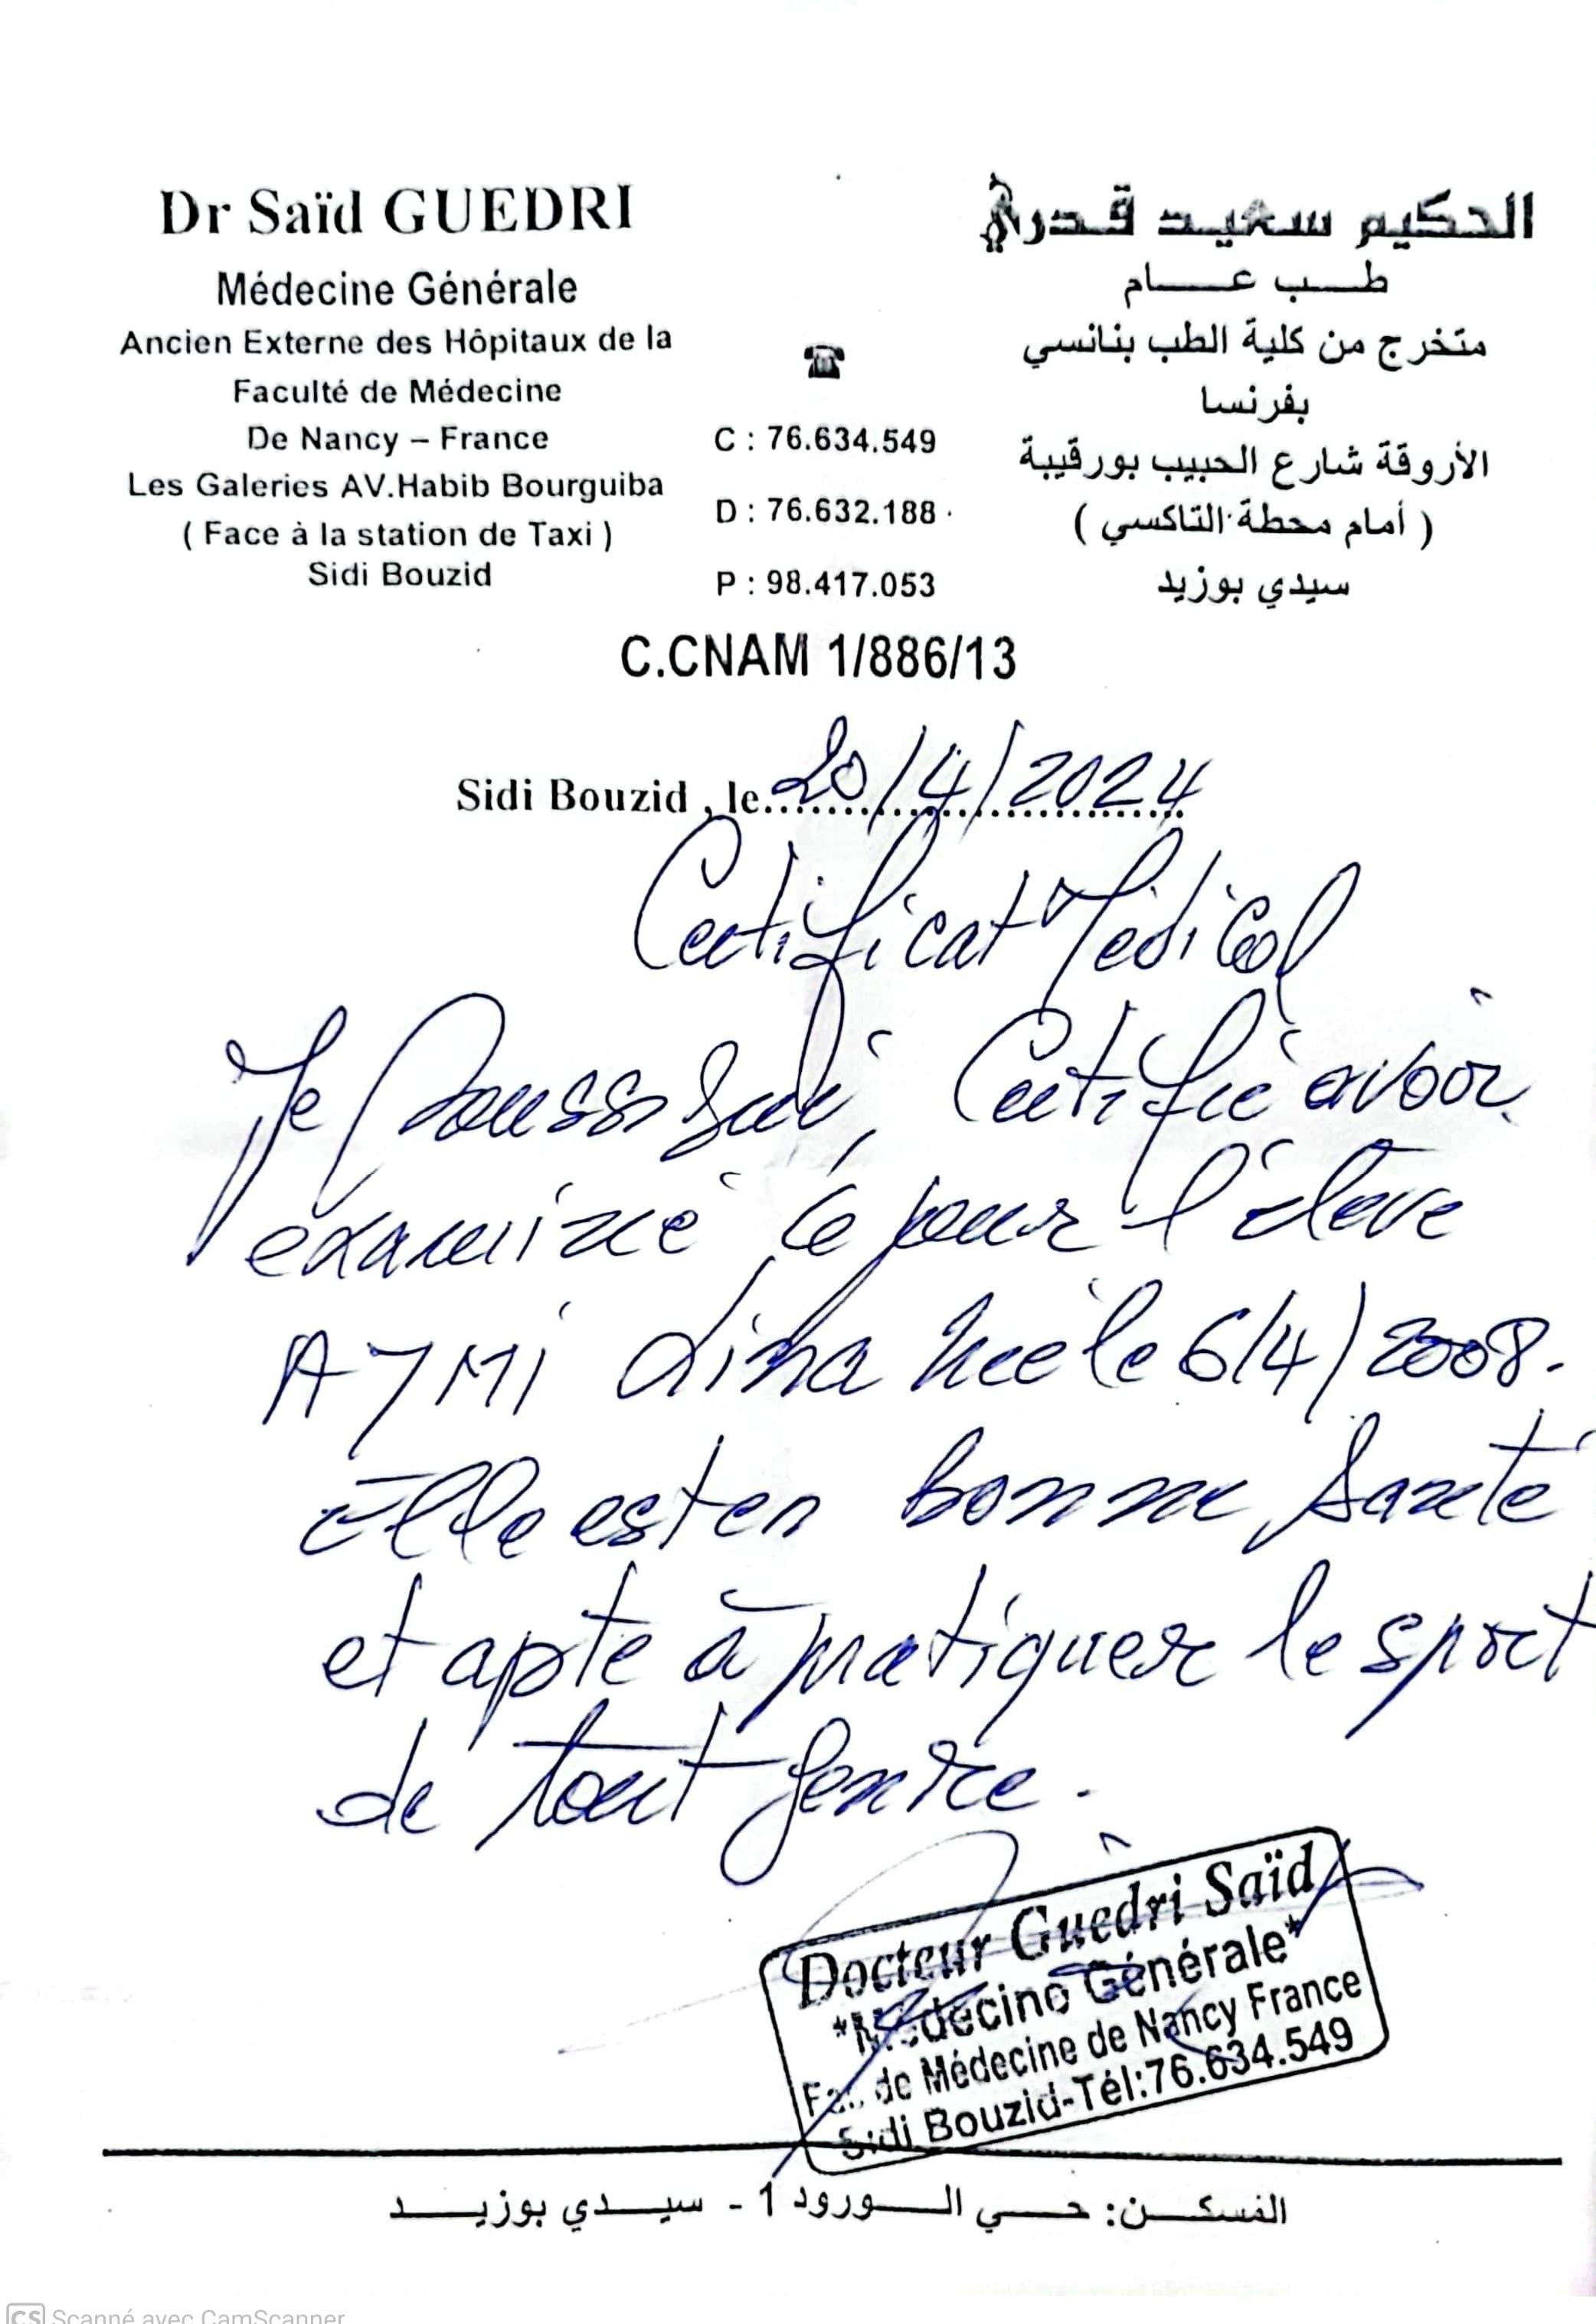 Dr Saïd GUEDRI
Médecine Générale
Ancien Externe des Hôpitaux de la
Faculté de Médecine
De Nancy – France
Les Galeries AV.Habib Bourguiba
( Face à la station de Taxi )
Sidi Bouzid
☎
C : 76.634.549
D : 76.632.188
P : 98.417.053
الحكيم سعيد قدري
طب عام
متخرج من كلية الطب بنانسي
بفرنسا
الأروقة شارع الحبيب بورقيبة
( أمام محطة التاكسي )
سيدي بوزيد
C.CNAM 1/886/13
Sidi Bouzid , le 20/4/2024
Certificat Médical
Je soussigné, Certifie avoir
examiné ce jour l'élève
AJMI Lina née le 6/4/2008.
elle est en bonne santé
et apte à pratiquer le sport
de tout genre.
Docteur Guedri Saïd
*Médecine Générale*
Fac. de Médecine de Nancy France
Sidi Bouzid-Tél:76.634.549
المسكن: حي الورود 1 - سيدي بوزيد
CS Scanné avec CamScanner